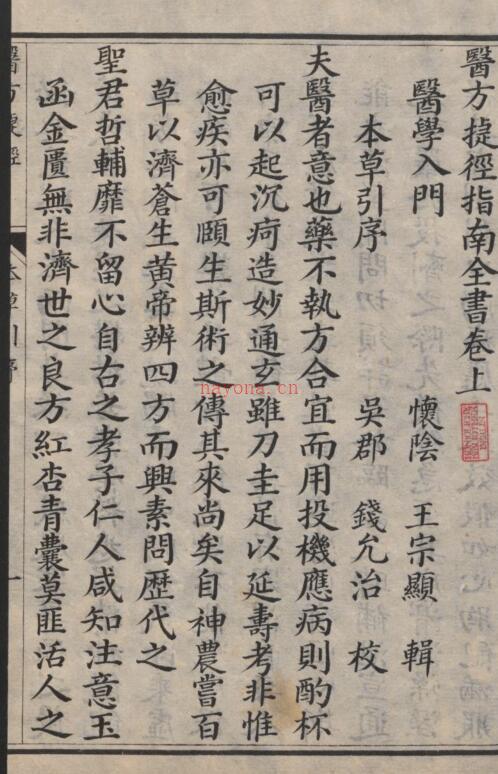 醫方捷徑指南全書卷上
醫學入門 懷陰 王宗顯 輯
本草引序 吳郡 錢允治 校
夫醫者意也藥不執方合宜而用投機應病則酌杯
可以起沉疴造妙通玄雖刀圭足以延壽考非惟
愈疾亦可頤生斯術之傳其來尚矣自神農嘗百
草以濟蒼生黄帝辨四方而興素問歷代之
聖君哲輔靡不留心自古之孝子仁人咸知注意玉
函金匱無非濟世之良方紅杏青囊莫匪活人之
醫方捷徑
本草引序
一
nayona.cn